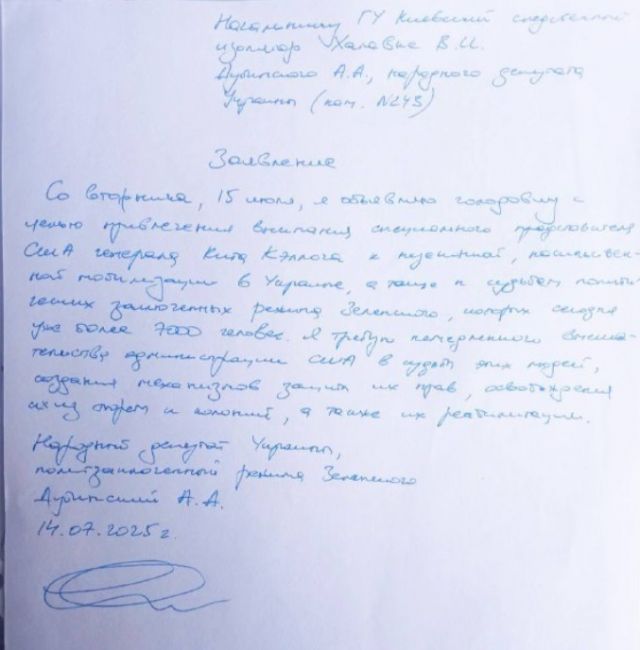 Начальнику ГУ Киевский следственный
изолятор Хававна В.И.
Дубинского А.А., народного депутата
Украины (кам. №243)
Заявление
Со вторника, 15 июля, я объявляю голодовку с
целью привлечения внимания специального представителя
США генерала Кита Кэллога к пузянной, насильствен-
ной мобилизации в Украине, а также к судьбам полити-
ческих заключенных режима Зеленского, которых сегодня
уже более 7000 человек. Я требую немедленного вмеша-
тельства администрации США в судьбы этих людей,
создания механизмов защиты их прав, освобождения
их из тюрем и колоний, а также их реабилитации.
Народный депутат Украины,
политзаключенный режима Зеленского
Дубинский А.А.
14.07.2025 г.